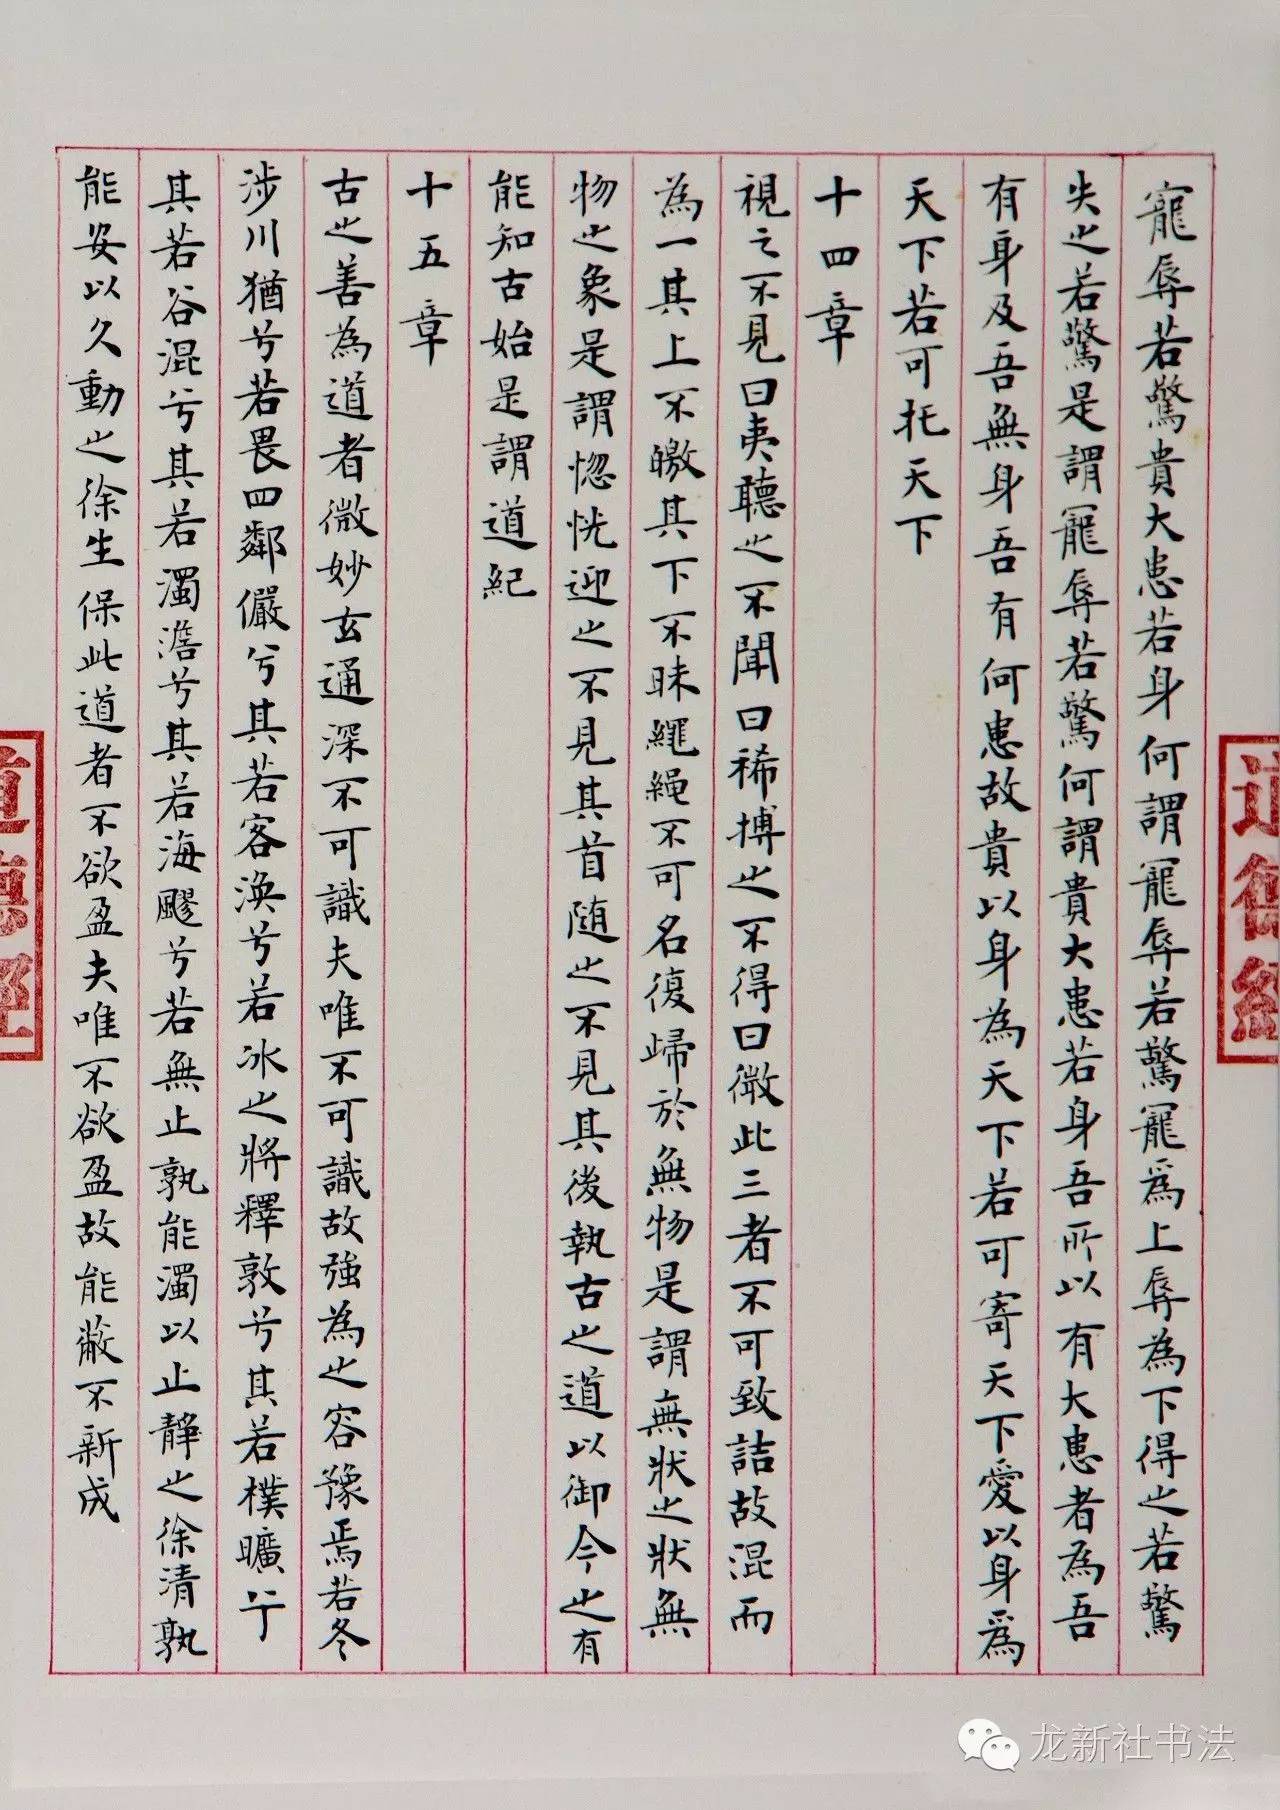 寵辱若驚貴大患若身何謂寵辱若驚寵爲上辱為下得之若驚
失之若驚是謂寵辱若驚何謂貴大患若身吾所以有大患者為吾
有身及吾無身吾有何患故貴以身為天下若可寄天下愛以身爲
天下若可托天下
十四章
視之不見曰夷聽之不聞曰稀搏之不得曰微此三者不可致詰故混而
為一其上不皦其下不昧繩繩不可名復歸於無物是謂無狀之狀無
物之象是謂惚恍迎之不見其首随之不見其後執古之道以御今之有
能知古始是謂道紀
十五章
古之善為道者微妙玄通深不可識夫唯不可識故強為之容豫焉若冬
涉川猶兮若畏四鄰儼兮其若客渙兮若冰之將釋敦兮其若樸曠兮
其若谷混兮其若濁澹兮其若海飂兮若無止孰能濁以止靜之徐清孰
能安以久動之徐生保此道者不欲盈夫唯不欲盈故能蔽不新成
道德經
道德經
龙新社书法